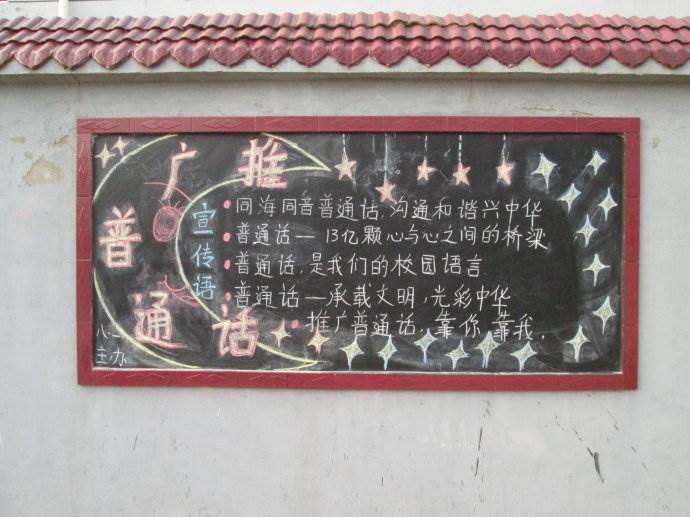 推广普通话
宣传语
同海同音普通话,沟通和谐兴中华
普通话—13亿颗心与心之间的桥梁
普通话,是我们的校园语言
普通话—承载文明,光彩中华
推广普通话,靠你,靠我,
八·二
主办